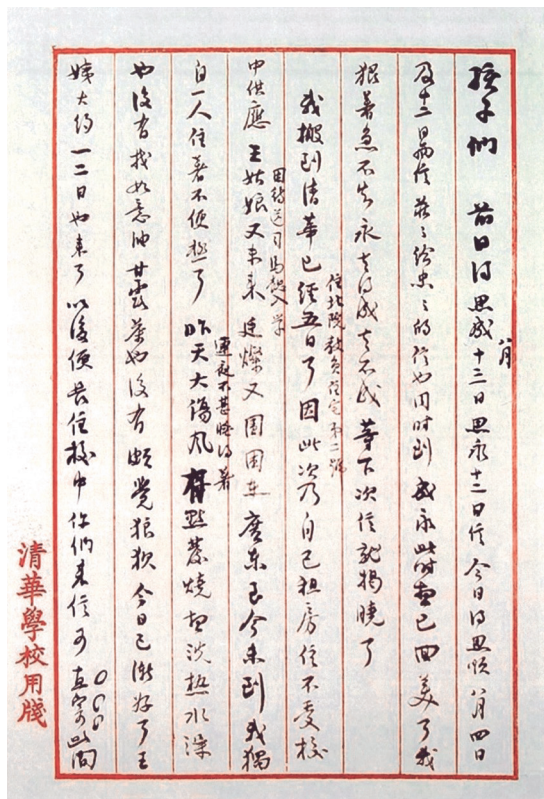 孩子們　前日得思成八月十三日思永十二日信今日得思順八月四日
及十二日兩信莊莊給忠忠的信也同時到成永此時想已回美了我
狠著急不知永去得成去不成等下次信就揭曉了
我搬到清華已經五日了住北院教員住宅第二號因此次乃自己租房住不受校
中供應王姑娘又未來因待送司馬懿入學廷燦又因困在廣東至今未到我獨
自一人住著不便極了昨天大傷風連夜不甚睡得著有點發燒想洗熱水澡
也沒有找如意油甘露茶也沒有頗覺狼狽今日已漸好了王
姨大約一二日也來了以後便長住校中你們來信可直寄此間
清華學校用牋